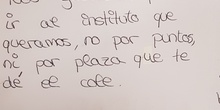 ir al instituto que
queramos, no por puntos,
ni por plaza que te
dé el cole.